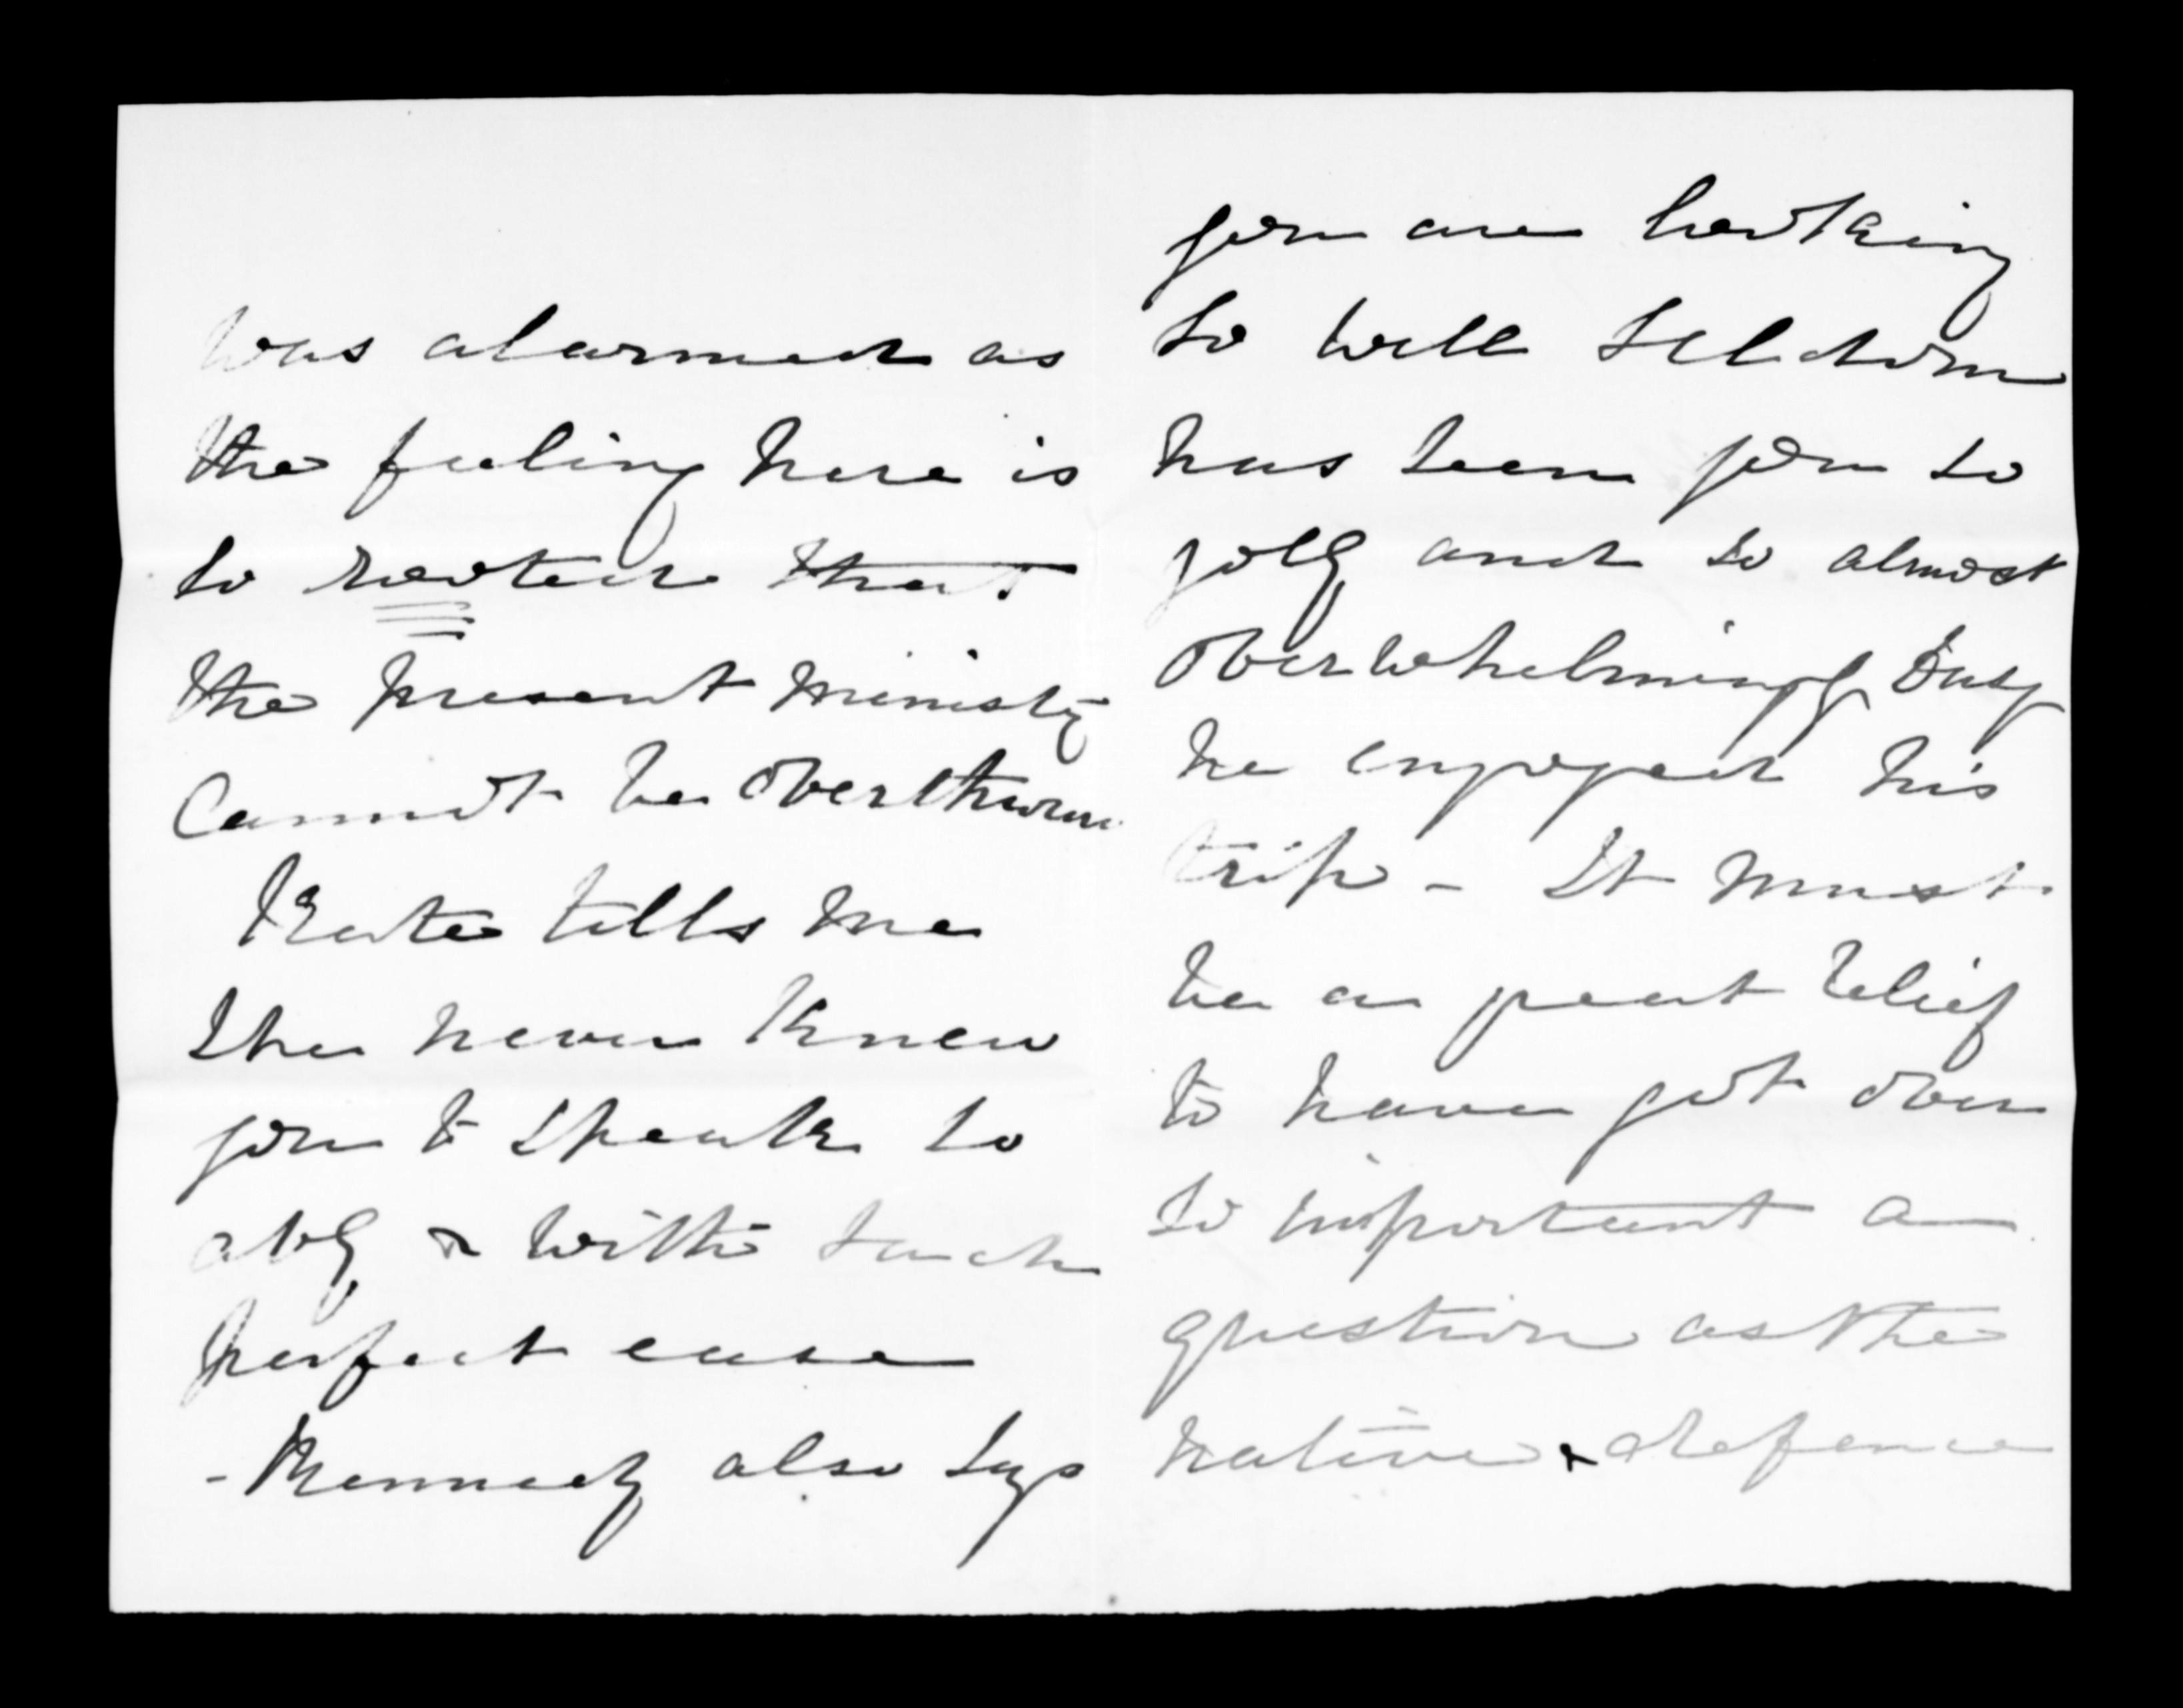 was alarmed as
the feeling here is
so rooted that
the present ministry
cannot be overthrown
Kate tells me
she never knew
you to speak so
ably & with such
perfect ease
- Kennedy also says
you are looking
so well seldom
has seen you so
jolly and so almost
overwhelmingly busy
he enjoyed his
trip - It must
be a great relief
to have got over
so important a
question as the
native & defence